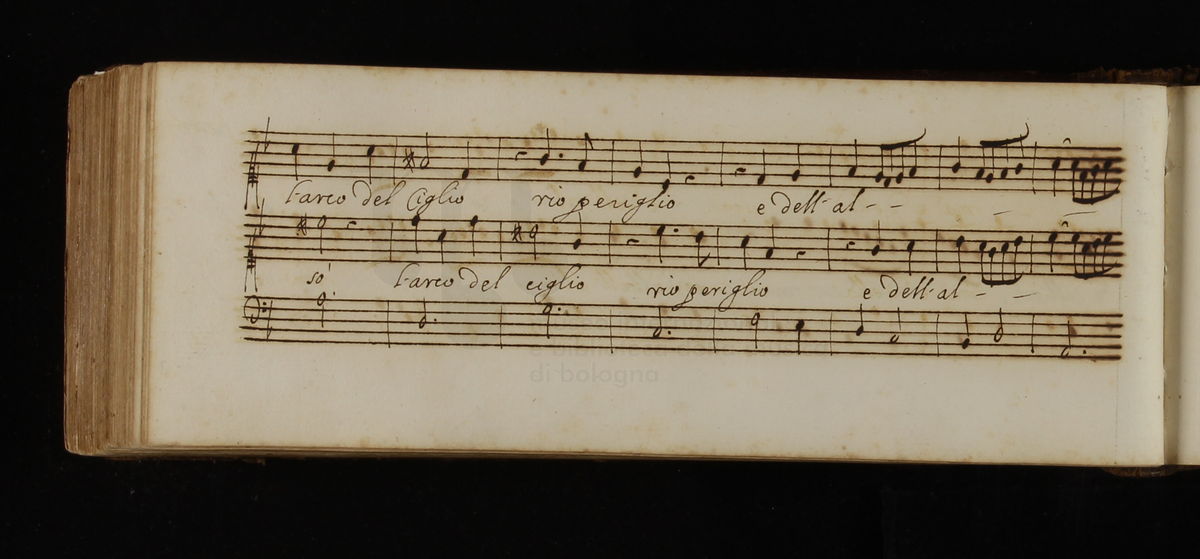 l'arco del Ciglio rio periglio e dell'al - -
so l'arco del ciglio rio periglio e dell'al - -
di bologna